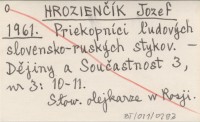 0
HROZIENČÍK Jozef
1961. Priekopníci ľudových
slovensko-ruských stykov. –
Dějiny a Součastnost 3,
nr 3: 10-11.
Słow. olejkarze w Rosji.